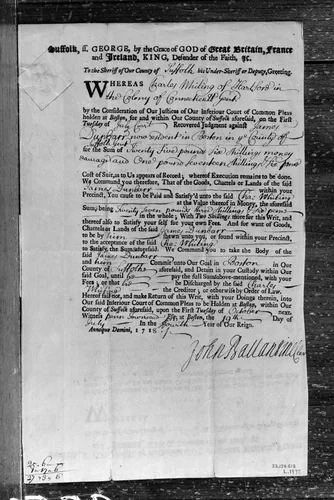 Suffolk, ss. GEORGE, by the Grace of GOD of Great Britain, France
and Ireland, KING, Defender of the Faith, &c.
To the Sheriff of Our County of Suffolk his Under-Sheriff or Deputy, Greeting.
WHEREAS Charles Whiting of Hartford in
the Colony of Connecticutt Gent
by the Consideration of Our Justices of Our Inferiour Court of Common Pleas
holden at Boston, for and within Our County of Suffolk aforesaid, on the First
Tuesday of July Court Recovered Judgment against James
Dunbarr now resident in Boston in County of
Suffolk Gent
for the Sum of Twenty five pounds Six Shillings money
damage and One pound seventeen shillings Six pence
Cost of Suit, as to Us appears of Record; whereof Execution remains to be done.
We Command you therefore, That of the Goods, Chattels or Lands of the said
James Dunbarr within your
Precinct, You cause to be Paid and Satisfy'd unto the said Cha Whiting
at the Value thereof in Money, the aforesaid
Sum; being Twenty Seven pounds three Shillings & Six pence
in the whole; With Two Shillings more for this Writ, and
thereof also to Satisfy your self for your own Fees. And for want of Goods,
Chattels or Lands of the said James Dunbarr
to be by him shewn unto you, or found within your Precinct,
to the acceptance of the said Cha Whiting
to Satisfy the Sums aforesaid. We Command you to take the Body of the
said James Dunbarr
and him Commit unto Our Goal in Boston in Our
County of Suffolke aforesaid, and Detain in your Custody within Our
said Goal, until he pay the full Sums above-mentioned, with your
Fees; or that he be Discharged by the said Charles
Whiting the Creditor; or otherwise by Order of Law.
Hereof fail not, and make Return of this Writ, with your Doings therein, into
Our said Inferiour Court of Common Pleas to be Holden at Boston, within Our
County of Suffolk aforesaid, upon the First Tuesday of October next.
Witness Esqr; at Boston, the 19th Day of
July In the fourth Year of Our Reign.
Annoque Domini, 1718.
John Ballantine Cler
25-6-
1-17-6
27-3-6